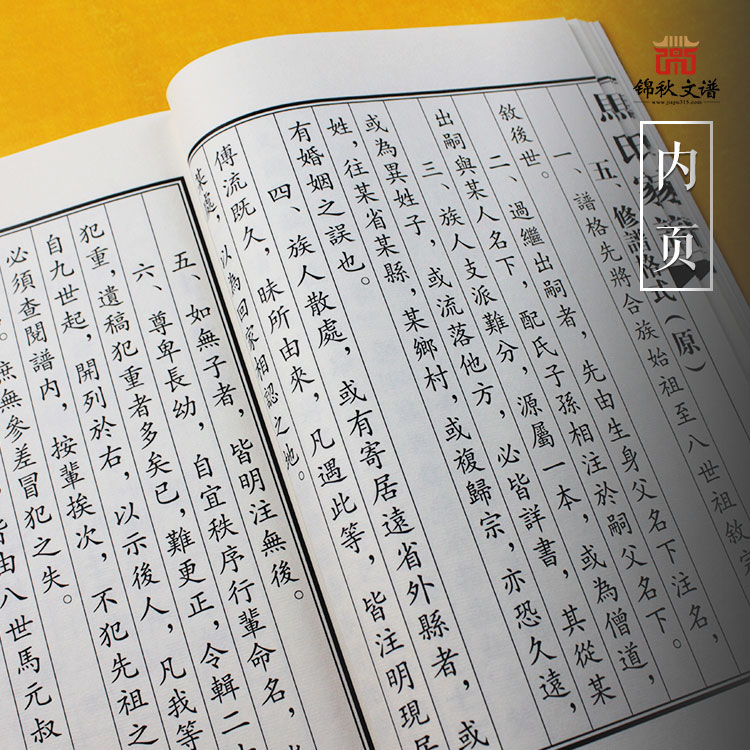 锦秋文谱
www.jiapu315.com
内页
五、修譜格式(原)
一、譜格先將合族始祖至八世祖敘完
敘後世。
二、過繼出嗣者，先由生身父名下注名，
出嗣與某人名下，配氏子孫相注於嗣父名下。
三、族人支派難分，源屬一本，或為僧道，
或為異姓子，或流落他方，必皆詳書，其從某
姓，往某省某縣，某鄉村，或複歸宗，亦恐久遠，
有婚姻之誤也。
四、族人散處，或有寄居遠省外縣者，或
傅流既久，昧所由來，凡遇此等，皆注明現居
某處，以為回家相認之地。
五、如無子者，皆明注無後。
六、尊卑長幼，自宜秩序行輩命名，
犯重，遺稿犯重者多矣已，難更正，令輯二
自九世起，開列於右，以示後人，凡我等
必須查閱譜內，按輩挨次，不犯先祖之
庶無參差冒犯之失。
由八世馬元叔